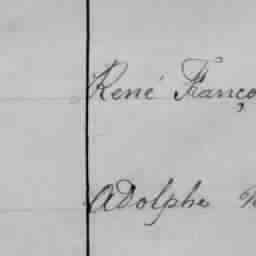 René Franço
Adolphe